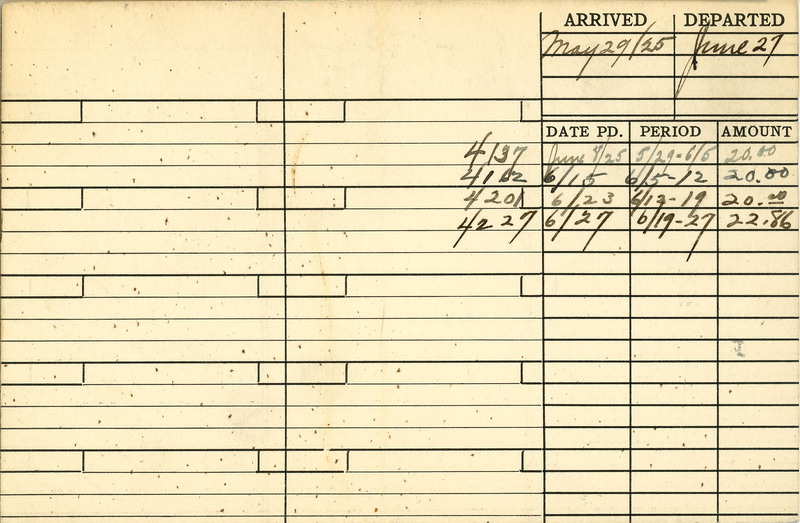 ARRIVED DEPARTED
May 29/25 June 27
DATE PD. PERIOD AMOUNT
4137 June 8/25 5/29-6/5 20.00
4162 6/15 6/5-12 20.00
4201 6/23 6/12-19 20.00
4227 6/27 6/19-27 22.86